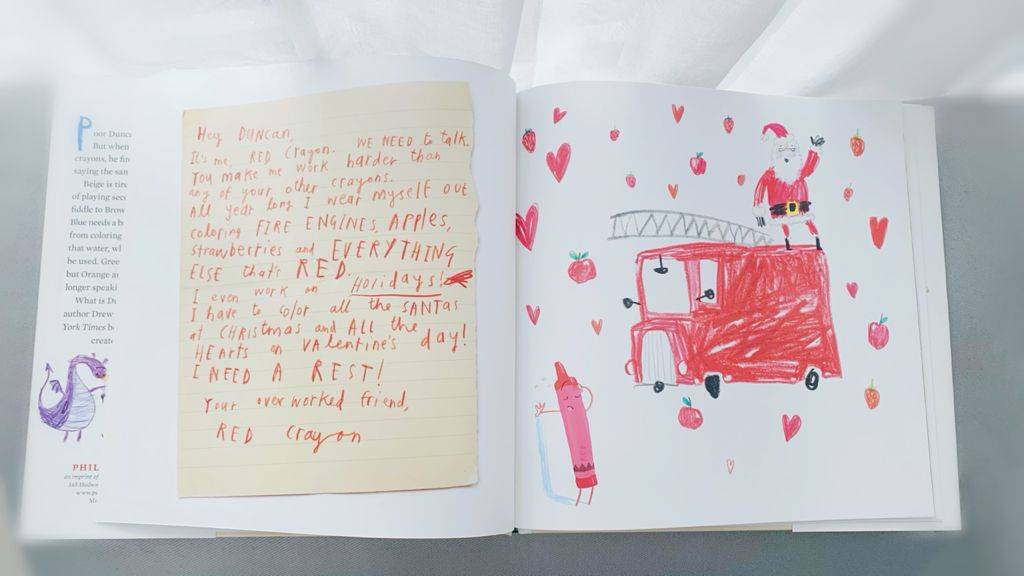 Poor Dunc
But when
crayons, he fin
saying the sam
Beige is tire
of playing seco
fiddle to Brow
Blue needs a b
from coloring
that water, wh
be used. Gree
but Orange an
longer speaki
What is Du
author Drew
York Times be
create
PHIL
an imprint of
345 Hudson
www.p
Hey DUNCAN,
It's me, RED Crayon. WE NEED to talk.
You make me work harder than
any of your other crayons.
All year long I wear myself out
coloring FIRE ENGINES, Apples,
strawberries and EVERYTHING
ELSE that's RED.
I even work on Holidays!
I have to color all the SANTAs
at CHRistmas and ALL the
HEARTs on VAlentine's day!
I NEED A REST!
Your overworked friend,
RED Crayon